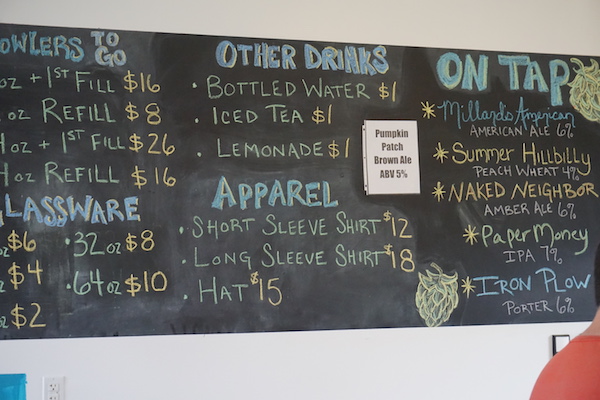 OWLERS TO GO
OZ + 1ST FILL $16
OZ REFILL $8
4OZ + 1ST FILL $26
4OZ REFILL $16
LASSWARE
$6
$4
OZ $2
32OZ $8
64OZ $10
OTHER DRINKS
· BOTTLED WATER $1
· ICED TEA $1
· LEMONADE $1
APPAREL
· SHORT SLEEVE SHIRT $12
· LONG SLEEVE SHIRT $18
· HAT $15
Pumpkin
Patch
Brown Ale
ABV 5%
ON TAP
* Millards American
AMERICAN ALE 6%
* Summer Hillbilly
PEACH WHEAT 4%
* NAKED NEIGHBOR
AMBER ALE 6%
* Paper Money
IPA 7%
* IRON PLOW
PORTER 6%